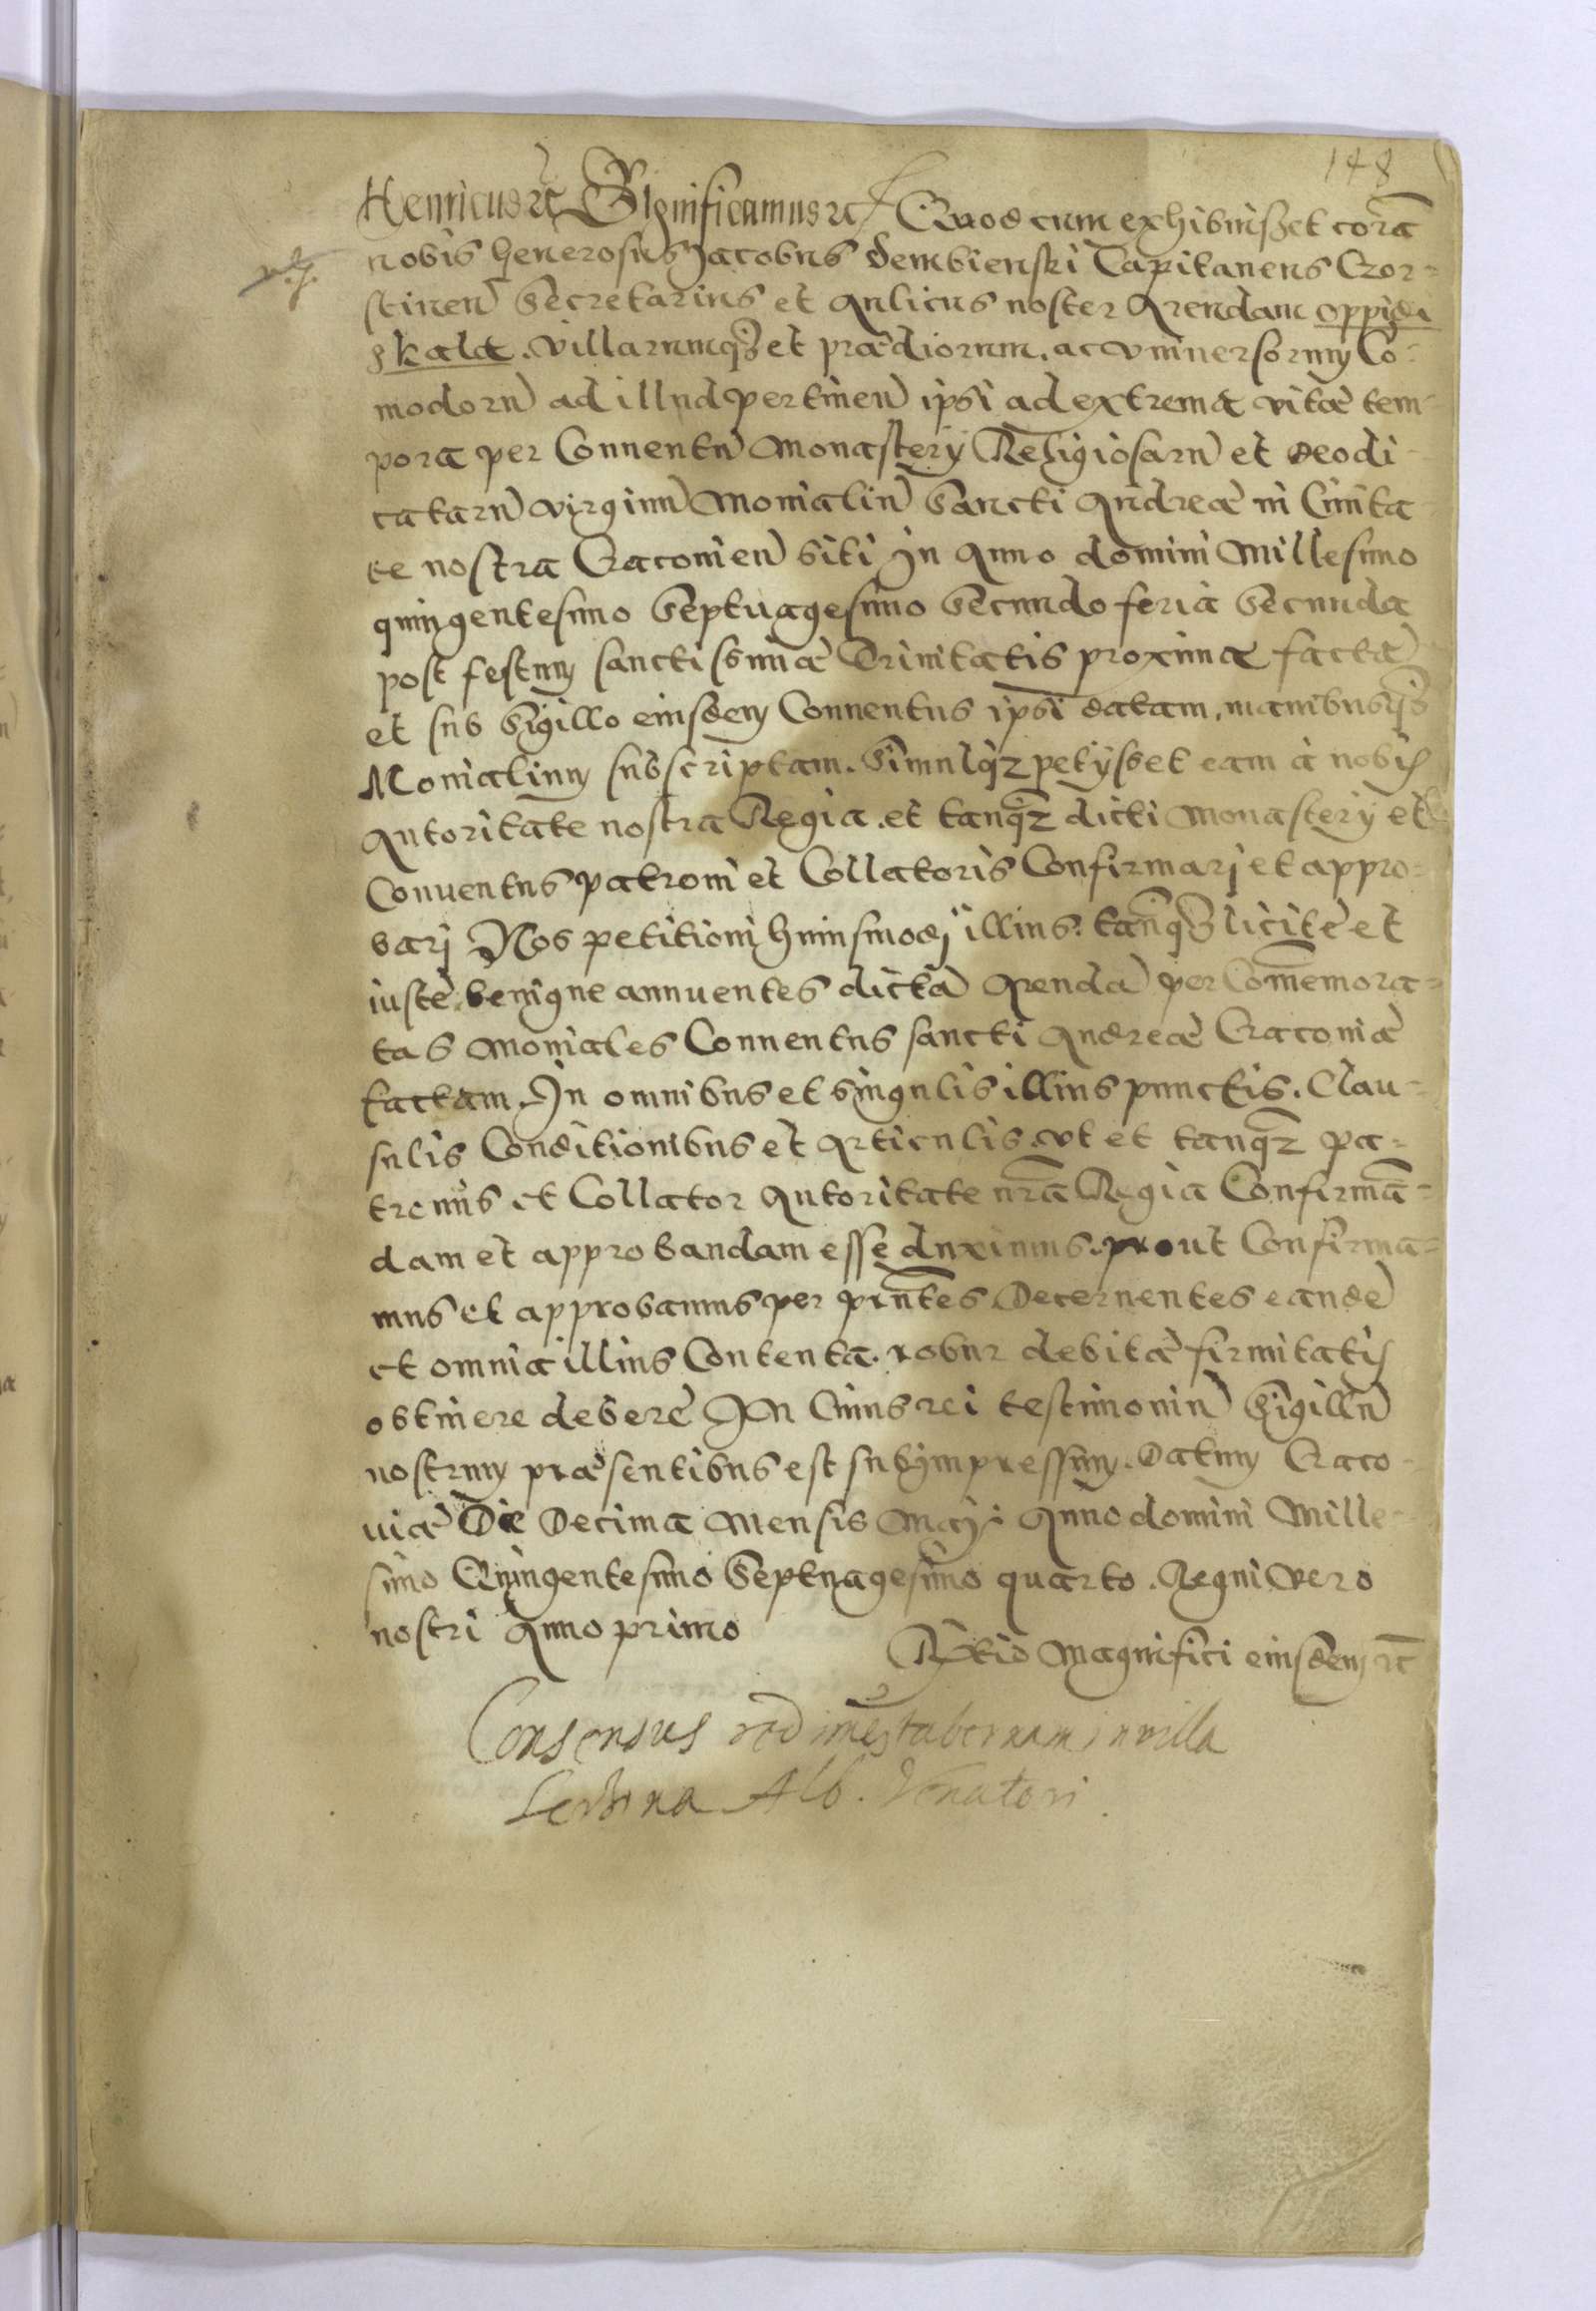 148
Henricus etc Significamus etc Quod cum exhibuisset corã
nobis Generosus Jacobus Dembienski Capitaneus Czor-
stinen Secretarius et Aulicus noster Arendam oppidi
Skala. villarumq3 et prædiorum. ac vniuersorum Co-
modorũ ad illud pertinen ipsi ad extrema vitæ tem-
pora per Conuentũ Monastery Religiosarũ et deodi-
catarũ virginũ Monialiũ Sancti Andreæ in Ciuita-
te nostra Cracouien siti In Anno domini Millesimo
quingentesimo Septuagesimo Secundo feria Secunda
post festum sanctissimæ Trinitatis proxima factã
et sub Sigillo eiusdem Conuentus ipsi datam, manibusq3
Monialium subscriptam. Simulq3 petysset eam à nobis
Autoritate nostra Regia et tanq3 dicti Monastery et
Conuentus patroni et Collatoris Confirmarj et appro-
barj Nos petitioni huiusmodj illius tanq3 licitè et
iustè benigne annuentes dictã Arendã per Com̃emora-
tas Moniales Conuentus sancti Andreæ Cracouiæ
factam. In omnibus et singulis illius punctis. Clau-
sulis Conditionibus et Articulis. vt et tanq3 pa-
tronus et Collator Autoritate nrã Regia Confirmã-
dam et approbandam esse duximus. prout Confirma-
mus et approbamus per pñtes Decernentes eandẽ
et omnia illius Contenta. robur debitæ firmitatis
obtinere debere In Cuius rei testimoniũ Sigillũ
nostrum præsentibus est subimpressum. Datum Craco-
uiæ Die Decima Mensis Maij. Anno domini Mille-
simo Quingentesimo Septuagesimo quarto. Regni vero
nostri Anno primo
Rẽltio Magnifici eiusdem etc
Consensus redimẽ tabernam in villa
Alb. Venatori